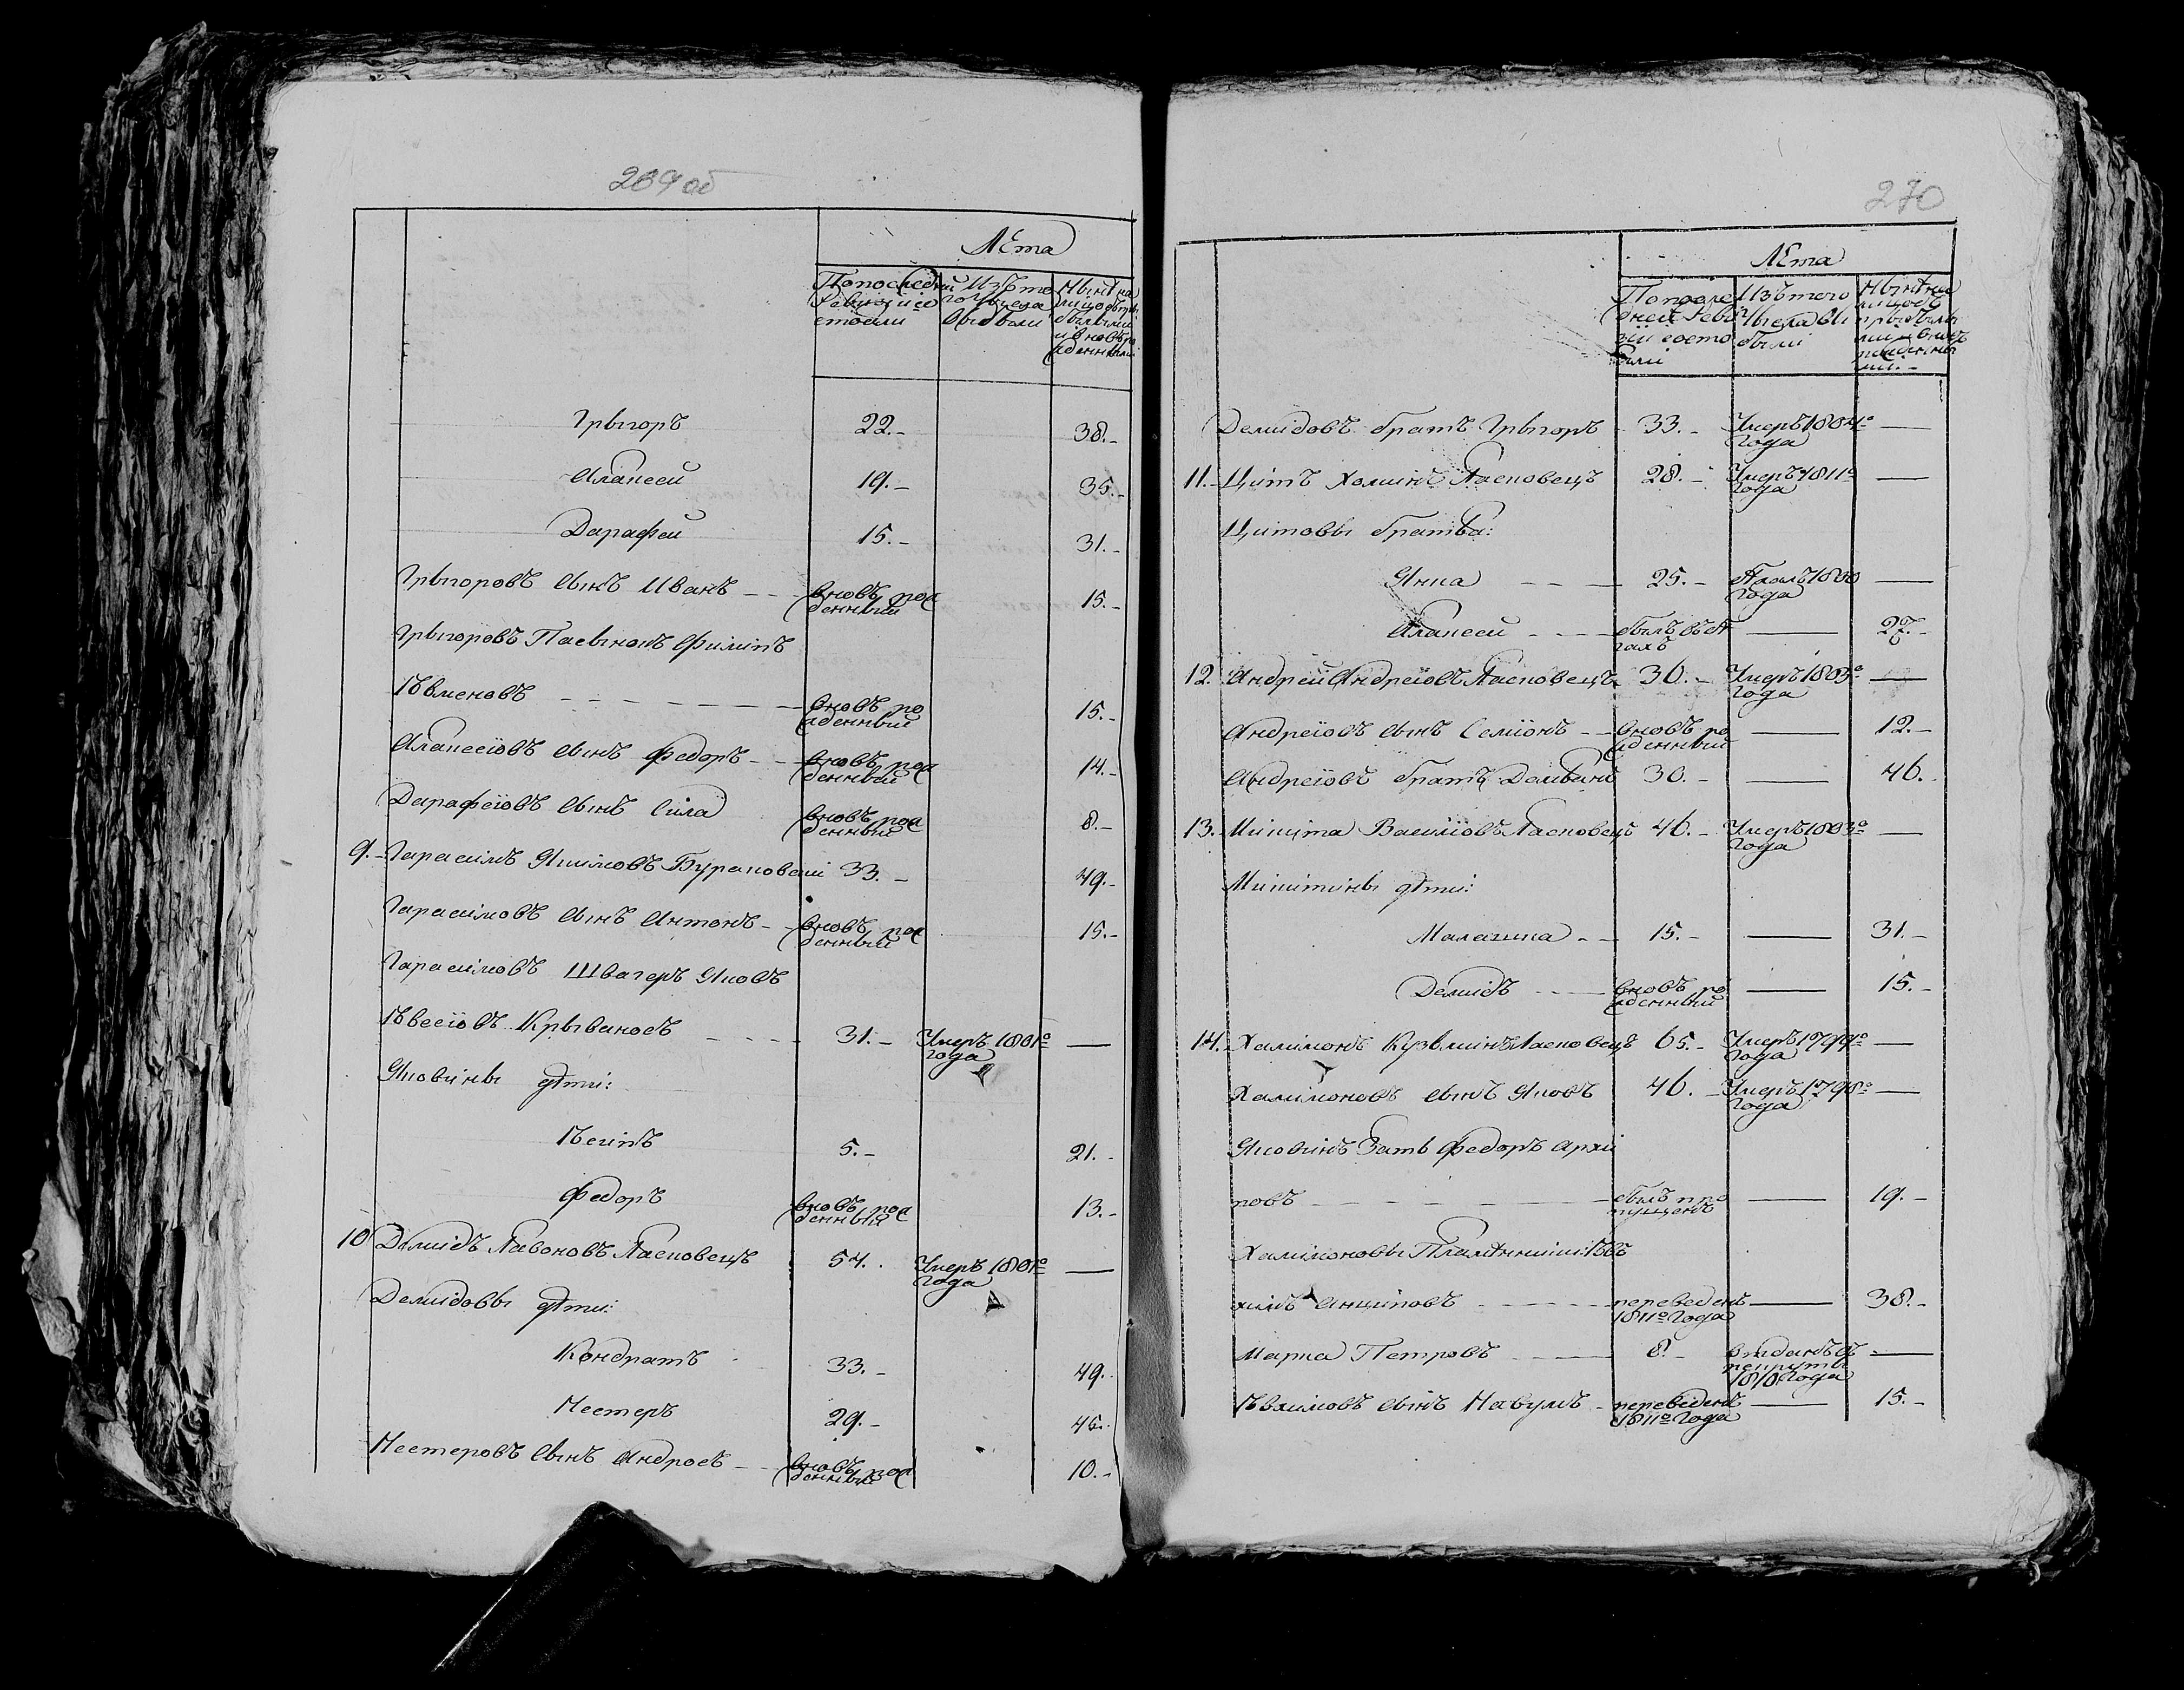 269 об
Лѣта
По последней Ревизіи состояли
Изъ того числа выбыли
Нынѣ на лицо съ прибылыми и вновь рожденными
Грыгоръ 22.- 38.-
Алаксей 19.- 35.-
Дарафей 15.- 31.-
Грыгоровъ сынъ Иванъ - - вновь рож 15.-
денный
Грыгоровъ Пасынокъ Филипъ
Іовменовъ - - - - - - вновь ро 15.-
жденный
Алаксеіовъ сынъ Федоръ - - вновь рож 14.-
денный
Дарафеіовъ сынъ Сила вновь рож 8.-
денный
9.- Гарасимъ Якимовъ Бураковскі 33.- 49.-
Гарасимовъ сынъ Антонъ - вновь рож 15.-
денный
Гарасимовъ Швагеръ Яковъ
Іовсеіовъ Крываносъ - - - - 31.- Умеръ 1801го —
года
Яковины дѣти:
Іосипъ 5.- 21.-
Федоръ вновь рож 13.-
денный
10 Демидъ Лавоновъ Ласковецъ 54. Умеръ 1801го —
года
Демидовы дѣти:
Кондратъ 33.- 49.-
Нестеръ 29.- 45.-
Нестеровъ сынъ Андросъ - - вновь рож 10.-
денный
270
Лѣта
По последней Ревизіи состояли
Изъ того числа выбыли
Нынѣ на лицо съ прибылыми и вновь рожденными.-
Демидовъ братъ Грыгоръ 33.- Умеръ 1804го —
года
11.- Цитъ Хоминъ Ласковецъ 28.- Умеръ 1811го —
года
Цитовы братья:
Янка - - — 25.- 1800 —
года
Алаксей - - - былъ въ бѣ — 27.-
гахъ
12. Андрей Андреіовъ Ласковецъ 36.- Умеръ 1803го —
года
Андреіовъ сынъ Семіонъ - - вновь ро — 12.-
жденный
Андреіовъ братъ Демьянъ 30.- — 46.
13. Микита Василіовъ Ласковецъ 46.- Умеръ 1803го —
года
Микитины дѣти:
Малашка - - 15.- — 31.-
Демидъ - - — вновь ро — 15.-
жденный
14. Халимонъ Кузьминъ Ласковецъ 65.- Умеръ 1799го —
года
Халимоновъ сынъ Яковъ 46.- Умеръ 1798го —
года
Яковинъ Зять Федоръ Архи
повъ - - - - - былъ про — 19.-
пущенъ
Халимоновы Племѣнники: Іов
химъ Анциповъ - - - - - переведенъ — 38.-
1811го года
Марка Петровъ - - — 8.- выданъ въ —
рекруты
1810 года
Іовхимовъ сынъ Навумъ - переведенъ — 15.-
1811го года